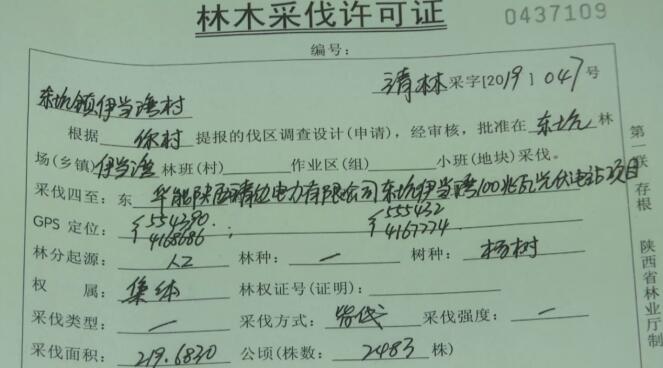 林木采伐许可证
0437109
编号:
靖林采字[2019]047号
东坑镇伊当湾村
根据 你村 提报的伐区调查设计(申请),经审核,批准在 东坑 林
场(乡镇)伊当湾 林班(村) 作业区(组) 小班(地块)采伐。
采伐四至: 东 华能陕西靖边电力有限公司东坑伊当湾100兆瓦光伏电站项目
GPS 定位: 554390 4168686 ; 555432 4167774
林分起源: 人工 林种: — 树种: 杨树
权 属: 集体 林权证号(证明):
采伐类型: — 采伐方式: 皆伐 采伐强度: —
采伐面积: 219.6830 公顷(株数: 2483 株)
第一联 存根 陕西省林业厅制